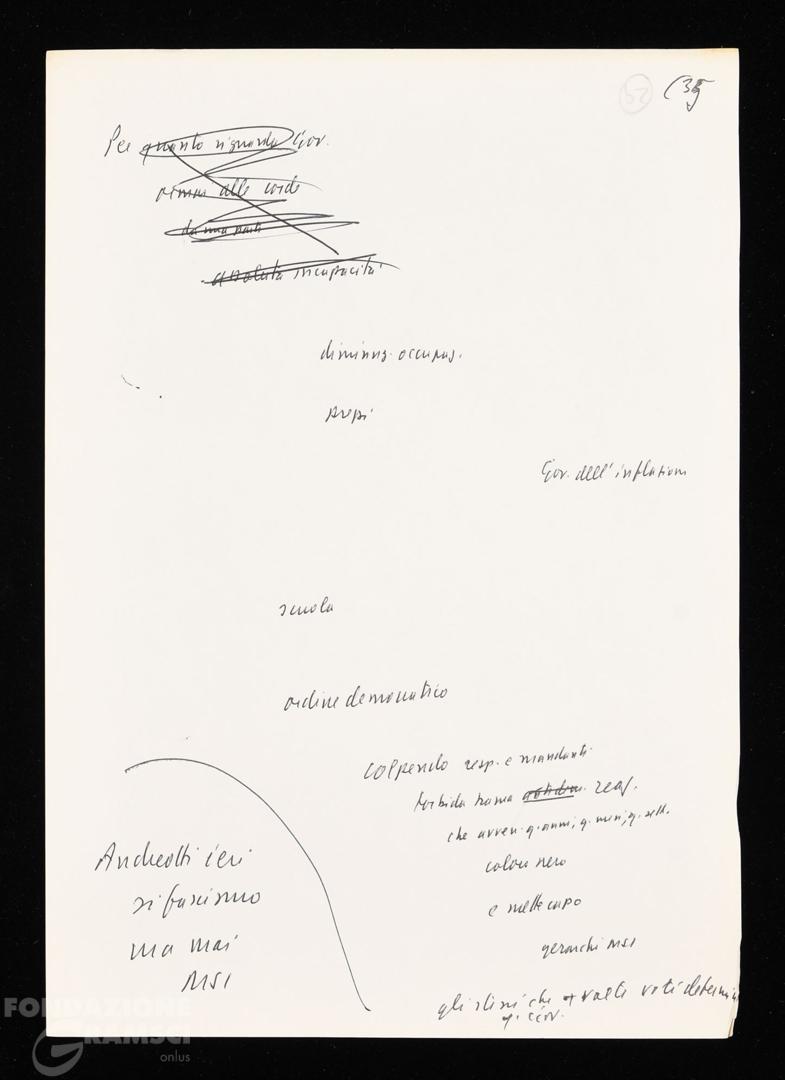 52 (35
Per quanto riguarda Gov.
ormai alle corde
da una parte
assoluta incapacità
diminuz. occupaz.
prezzi
Gov. dell'inflazione
scuola
ordine democratico
colpendo resp. e mandanti
torbida trama reaz.
che avven. q. anni, q. mesi, q. sett.
colore nero
e mette capo
gerarchi MSI
gli stessi che + volte voti determin
q. Gov.
Andreotti ieri
si fascismo
ma mai
MSI
FONDAZIONE
GRAMSCI
onlus